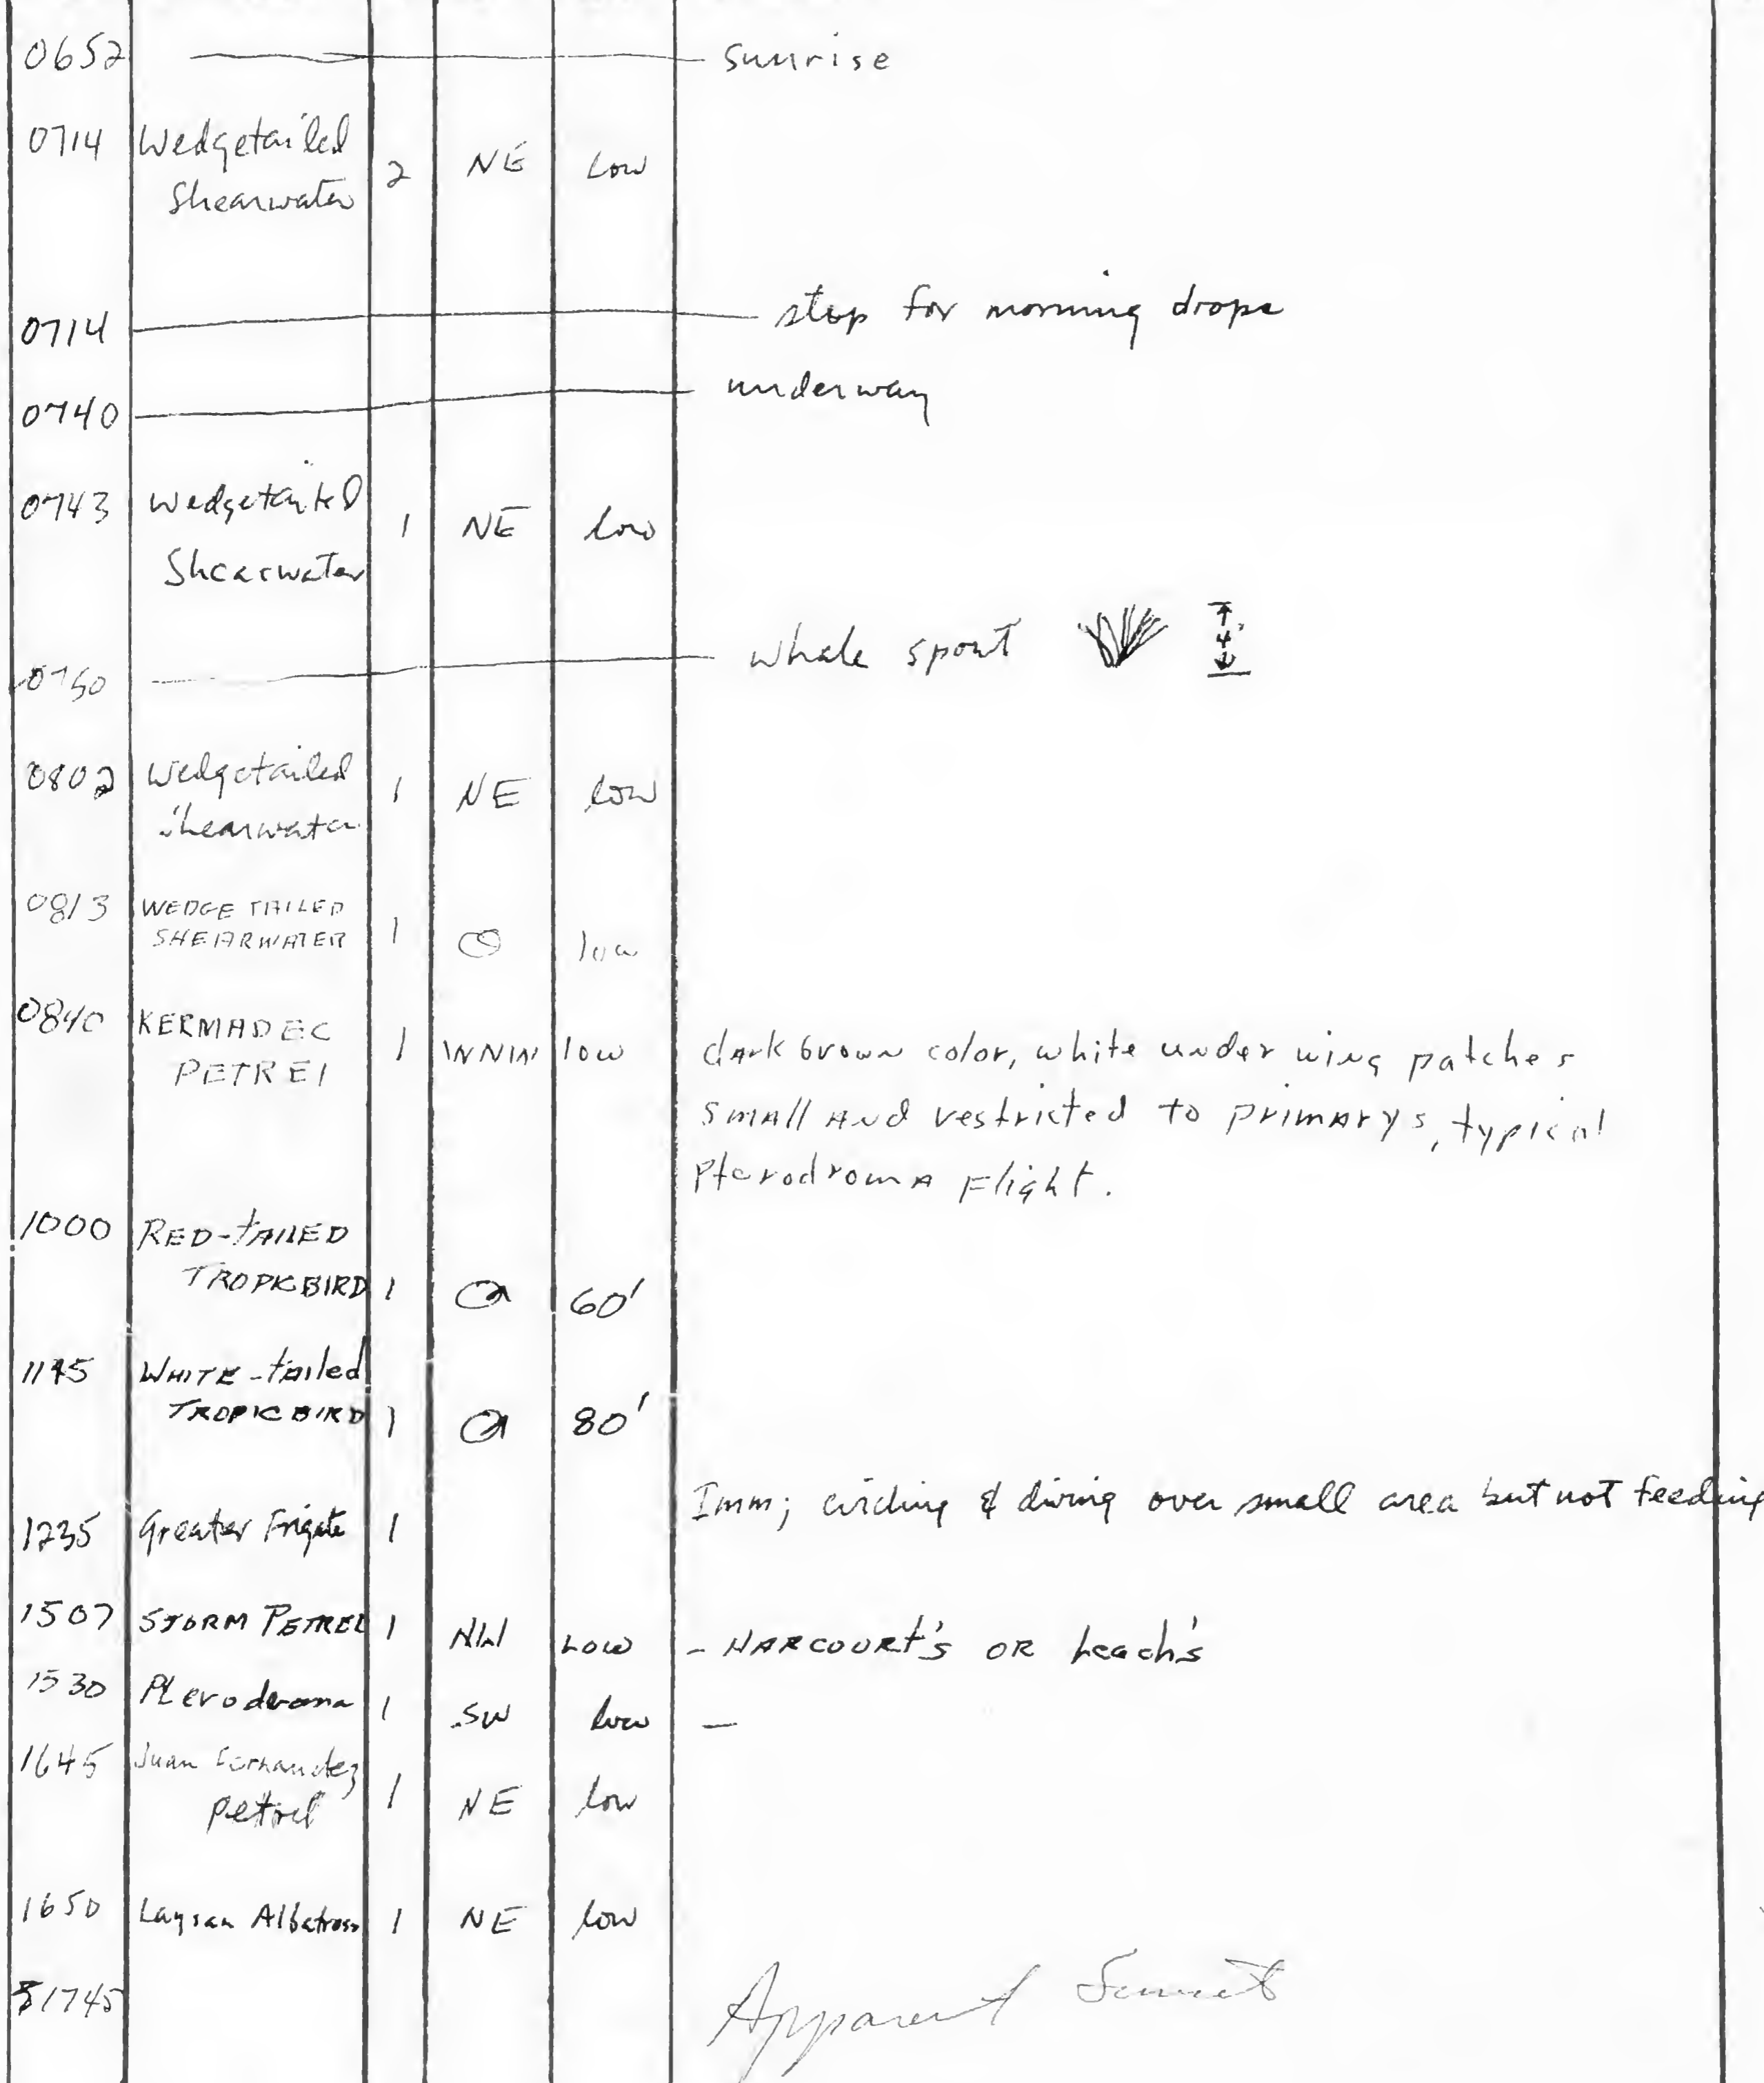 0652 sunrise
0714 Wedgetailed
Shearwater 2 NE Low
0714 stop for morning drops
0740 underway
0743 Wedgetailed
Shearwater 1 NE low
0750 whale spout 4'
0802 Wedgetailed
Shearwater 1 NE low
0813 WEDGE TAILED
SHEARWATER 1 low
0840 KERMADEC
PETREl 1 WNNW low dark brown color, white under wing patches
small and restricted to primarys, typical
Pterodroma Flight.
1000 RED-tAILED
TROPICBIRD 1 60'
1145 WHITE-tailed
TROPICBIRD 1 80'
1235 Greater Frigate 1 Imm; circling & diving over small area but not feeding
1507 STORM PETREL 1 NW LOW - HARCOURt's OR Leach's
1530 Pterodroma 1 SW low —
1645 Juan Fernandez
petrel 1 NE low
1650 Laysan Albatross 1 NE low
1745 Apparent Sunset